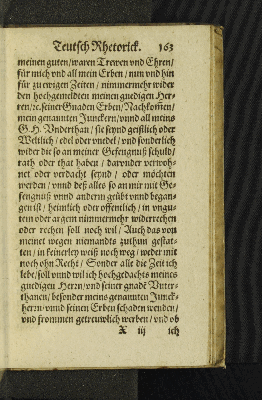 Teutsch Rhetorick. 163
meinen guten/ waren Trewen vnd Ehren/
für mich vnd all mein Erben/ nun vnd hin
für zu ewigen Zeiten/ nimmermehr wider
den hochgemeldten meinen gnedigen Her-
ren/ ꝛc. seiner Gnaden Erben/ Nachkom̃en/
mein genannten Junckern/ vnnd all meins
G. H. Vnderthan/ sie seynd geistlich oder
Weltlich/ edel oder vnedel/ vnd sonderlich
wider die so an meiner Gefengnuß schuld/
rath oder that haben/ darunder verwoh-
net oder verdacht seynd/ oder möchten
werden/ vnnd deß alles so an mir mit Ge-
fengnuß vnnd anderm geübt vnnd began-
gen ist/ heimlich oder offentlich/ in vngu-
tem oder argem nimmermehr widerrechen
oder rechen soll noch wil/ Auch das von
meinet wegen niemandts zuthun gestat-
ten/ in keinerley weiß noch weg/ weder mit
noch ohn Recht/ Sonder alle die Zeit ich
lebe/ soll vnnd wil ich hochgedachts meines
gnedigen Herrn/ vnd seiner gnadē Vnter-
thanen/ besonder meins genannten Junck-
herrn/ vnnd seinen Erben schaden wenden/
vnd frommen getreuwlich werben/ vnd ob
X iij ich